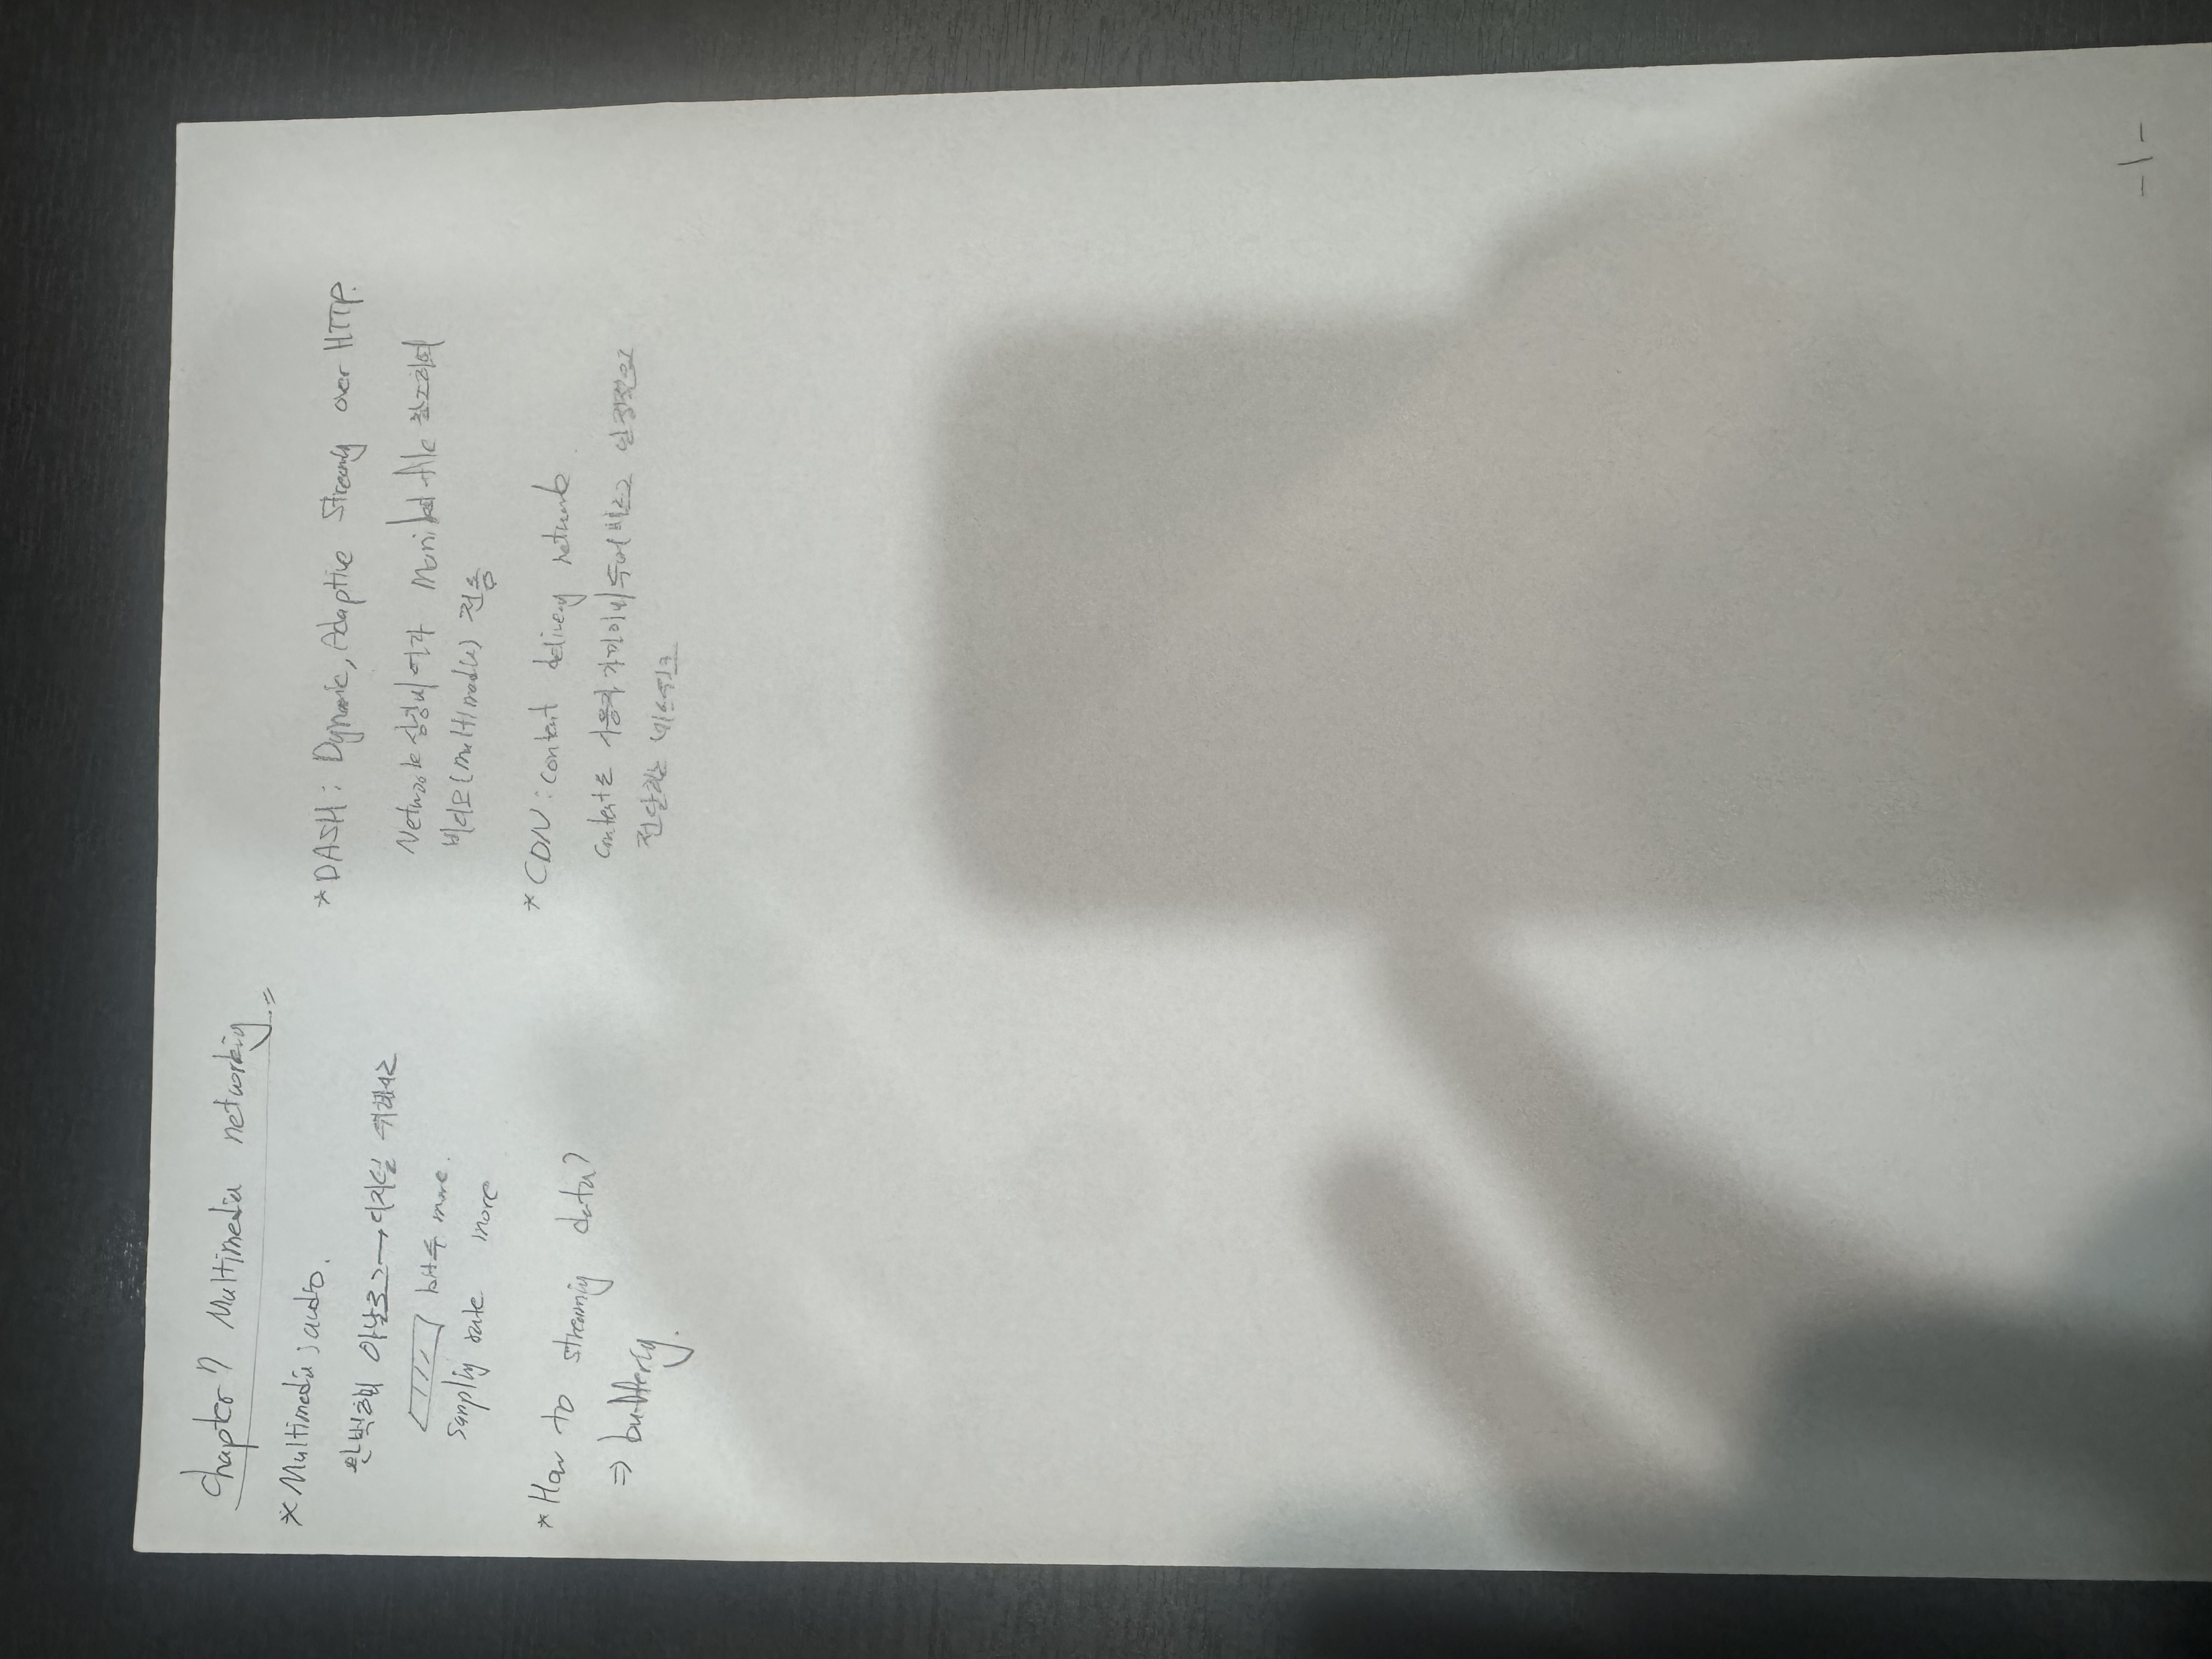 Chapter 7 Multimedia networkig
* Multimedia ; audio.
완벽하게 아날로그 → 디지털 위해서는
bit수 more.
Samplig rate more
* How to streamig data?
⇒ bufferig.
* DASH : Dynamic, Adaptive Streamig over HTTP.
Network 상황에 따라 Manifest file 참조하여
비디오(multimedia) 전송
* CDN : content delivery network
content를 사용자 가까이에 두어 빠르고 안정적으로
전달하는 네트워크
-1-